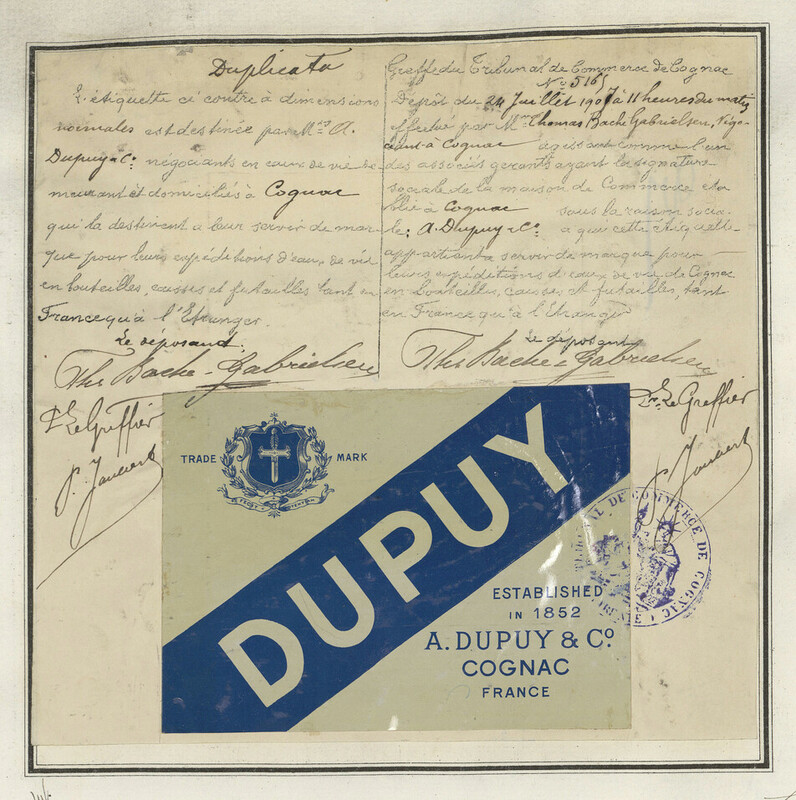 Duplicata
L'étiquette ci contre à dimensions
normales est destinée par Mrs A.
Dupuy & Co. négociants en eaux de vie de
meurant et domiciliés à Cognac
qui la destinent a leur servir de mar
que pour leurs expéditions d'eaux de vie
en bouteilles, caisses et futailles tant en
France qu'à l'Etranger
Le déposant.
Ths Bache-Gabrielsen
Le Greffier
Greffe du Tribunal de Commerce de Cognac
No 5165
Dépôt du 24 Juillet 1907 à 11 heures du matin
effectué par Mr Thomas Bache Gabrielsen, Négo-
ciant à Cognac agissant comme l'un
des associés gérants ayant la signature
sociale de la maison de Commerce éta
blie à Cognac sous la raison socia-
le: A. Dupuy & Co. à que cette étiquette
appartient a servir de marque pour
leurs expéditions d'eaux de vie de Cognac
en bouteilles, caisses et futailles, tant
en France qu'à l'Etranger
Le déposant
Ths Bache-Gabrielsen
Le Greffier
TRADE MARK
DUPUY
ESTABLISHED
IN 1852
A. DUPUY & Co.
COGNAC
FRANCE
TRIBUNAL DE COMMERCE DE COGNAC